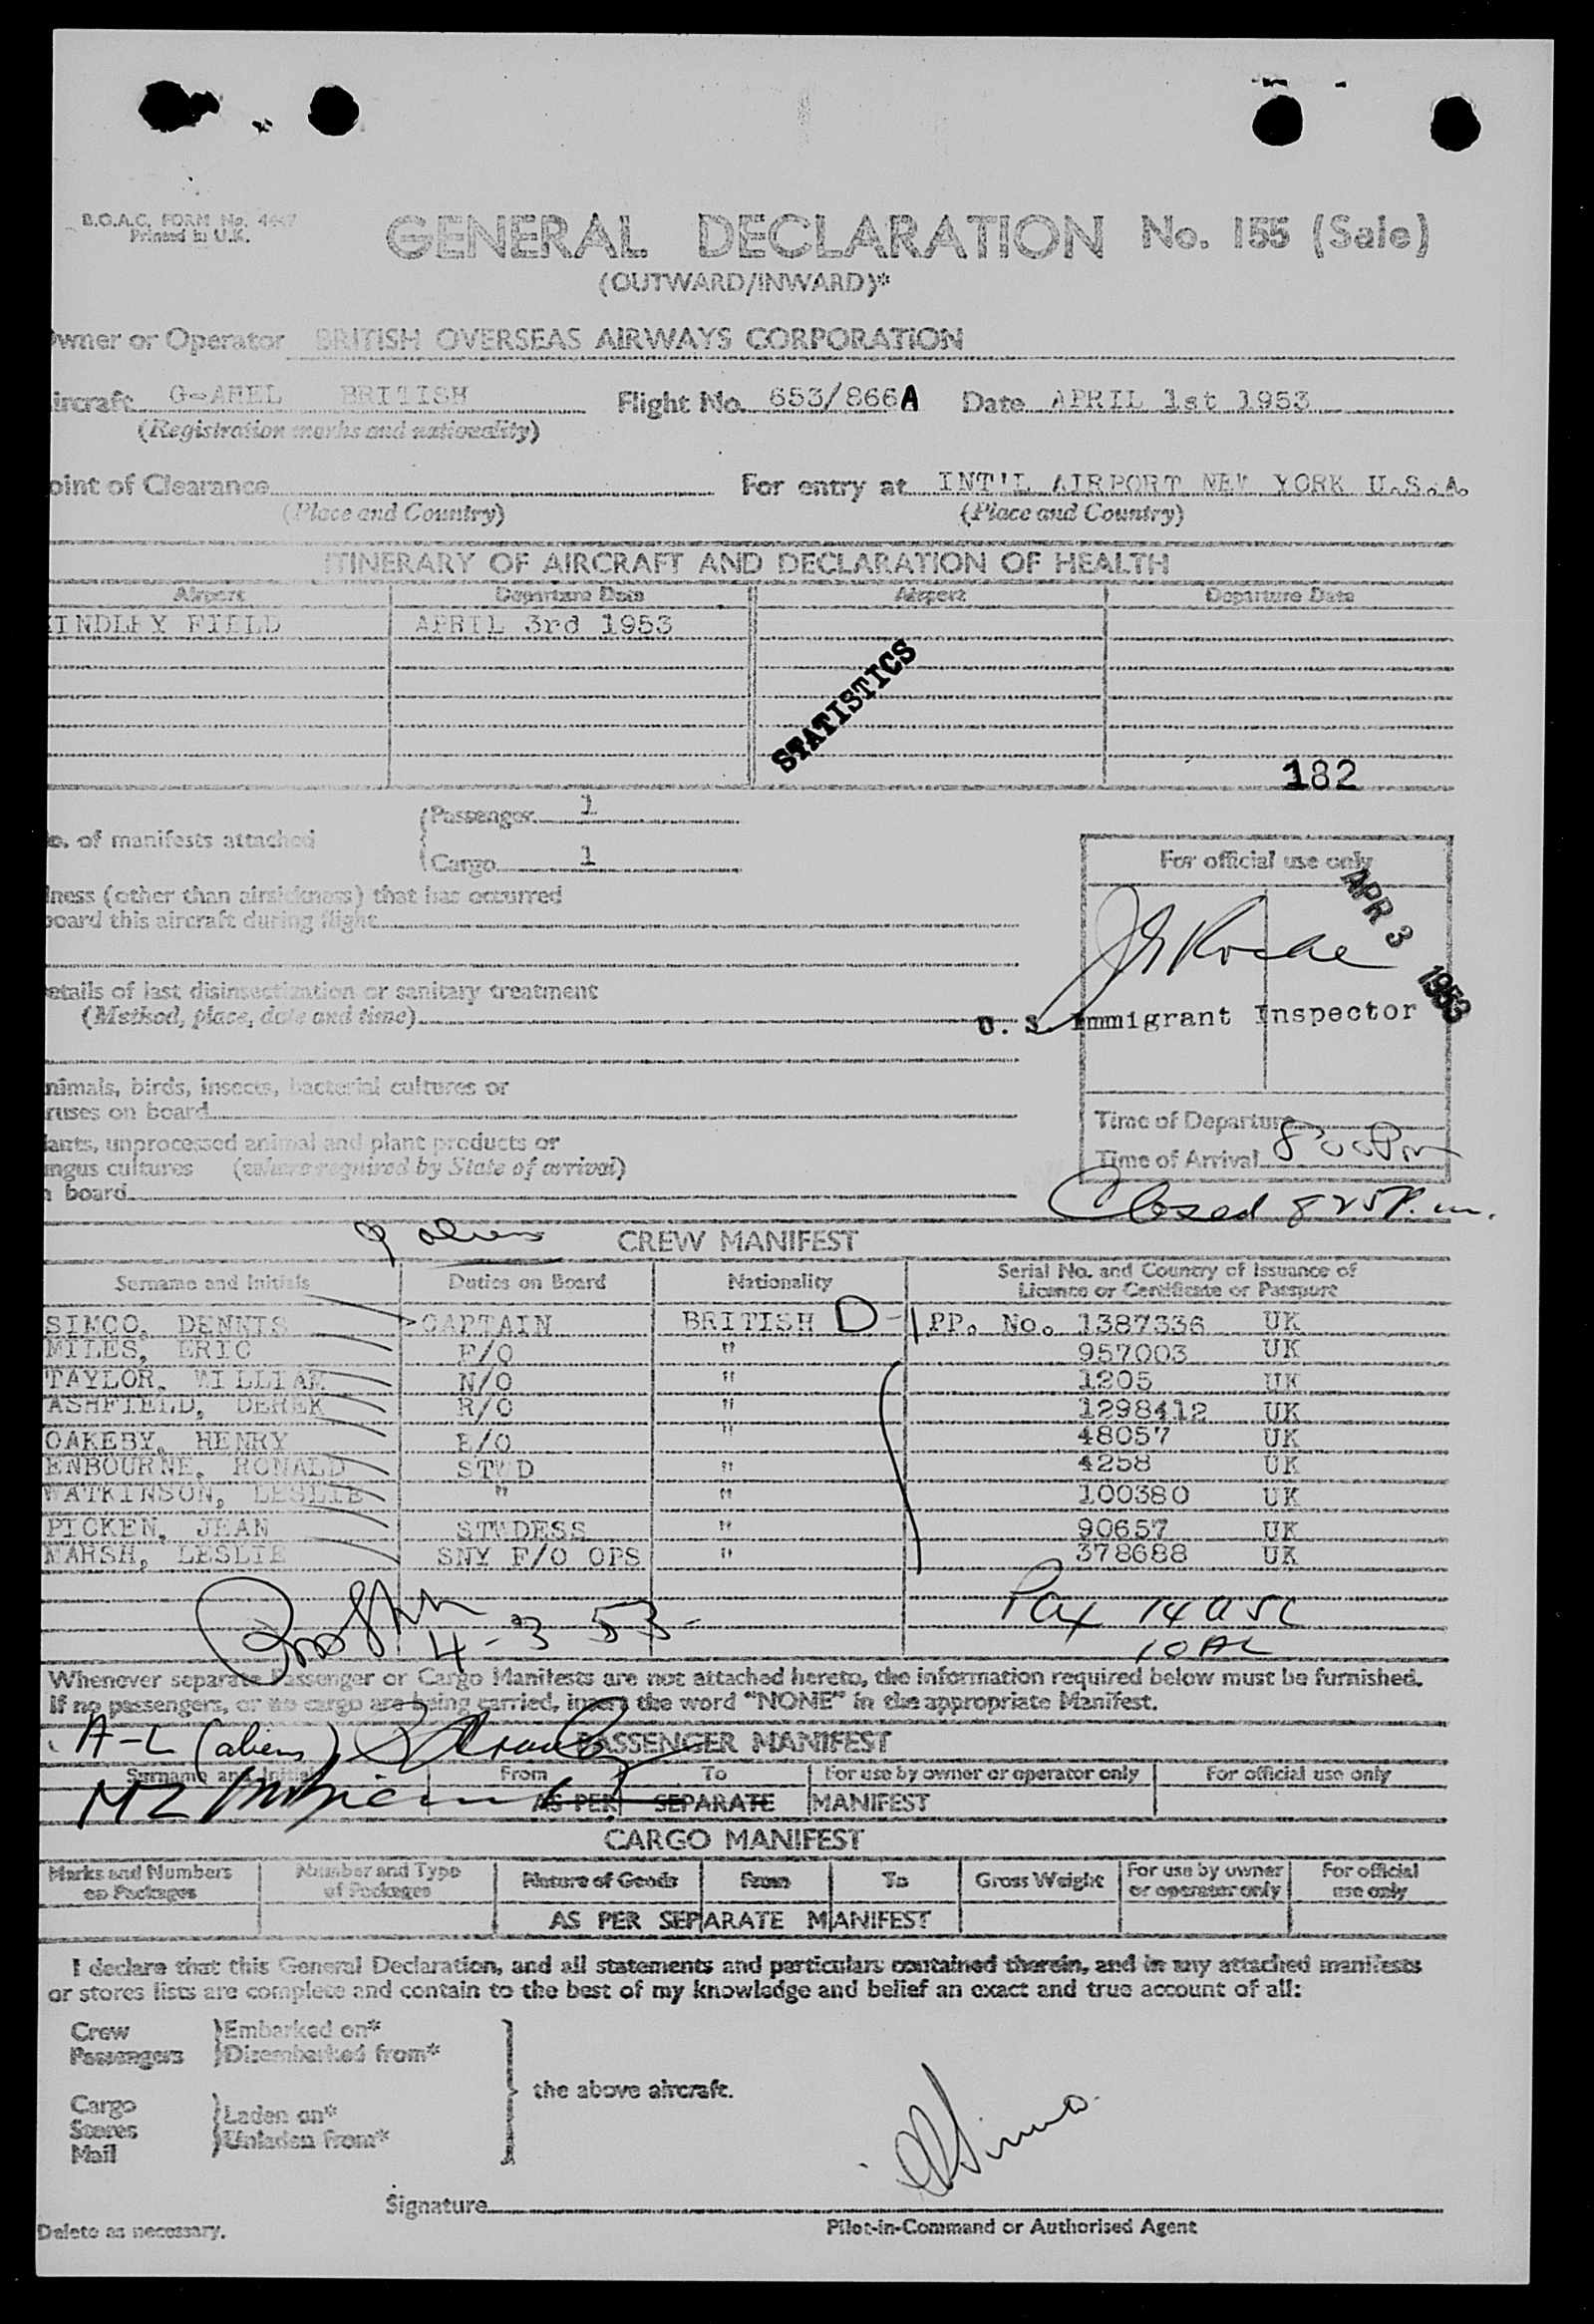 B.O.A.C. FORM No. 4447
Printed in U.K.
GENERAL DECLARATION No. 155 (Sale)
(OUTWARD/INWARD)*
wner or Operator BRITISH OVERSEAS AIRWAYS CORPORATION
ircraft G-AHEL BRITISH Flight No. 653/866A Date APRIL 1st 1953
(Registration marks and nationality)
oint of Clearance For entry at INT'L AIRPORT NEW YORK U.S.A.
(Place and Country) (Place and Country)
ITINERARY OF AIRCRAFT AND DECLARATION OF HEALTH
Airport Departure Date Airport Departure Date
INDLEY FIELD APRIL 3rd 1953
STATISTICS
182
o. of manifests attached
Passenger 1
Cargo 1
For official use only
APR 3 1953
lness (other than airsickness) that has occurred
board this aircraft during flight
etails of last disinsectization or sanitary treatment
(Method, place, date and time)
U. S. Immigrant Inspector
nimals, birds, insects, bacterial cultures or
ruses on board
lants, unprocessed animal and plant products or
ungus cultures (where required by State of arrival)
n board
Time of Departure
Time of Arrival 8 00 Pm
Closed 8 25 P.m.
9 aliens CREW MANIFEST
Surname and Initials Duties on Board Nationality Serial No. and Country of Issuance of
Licence or Certificate or Passport
SIMCO, DENNIS CAPTAIN BRITISH D-1 PP. No. 1387336 UK
MILES, ERIC F/O " 957003 UK
TAYLOR, WILLIAM N/O " 1205 UK
ASHFIELD, DEREK R/O " 1298412 UK
OAKEBY, HENRY E/O " 48057 UK
ENBOURNE, RONALD STWD " 4258 UK
WATKINSON, LESLIE " " 100380 UK
PICKEN, JEAN STWDESS " 90657 UK
MARSH, LESLIE SNY F/O OPS " 378688 UK
4-3 53- Pax 14 USC
10 AL
Whenever separate Passenger or Cargo Manifests are not attached hereto, the information required below must be furnished.
If no passengers, or no cargo are being carried, insert the word "NONE" in the appropriate Manifest.
A-L (aliens) PASSENGER MANIFEST
Surname and Initials From To For use by owner or operator only For official use only
MZ AS PER SEPARATE MANIFEST
CARGO MANIFEST
Marks and Numbers on Packages Number and Type of Packages Nature of Goods From To Gross Weight For use by owner or operator only For official use only
AS PER SEPARATE MANIFEST
I declare that this General Declaration, and all statements and particulars contained therein, and in any attached manifests
or stores lists are complete and contain to the best of my knowledge and belief an exact and true account of all:
Crew Embarked on*
Passengers Disembarked from*
the above aircraft.
Cargo
Laden on*
Stores
Unladen from*
Mail
Signature
Delete as necessary. Pilot-in-Command or Authorised Agent